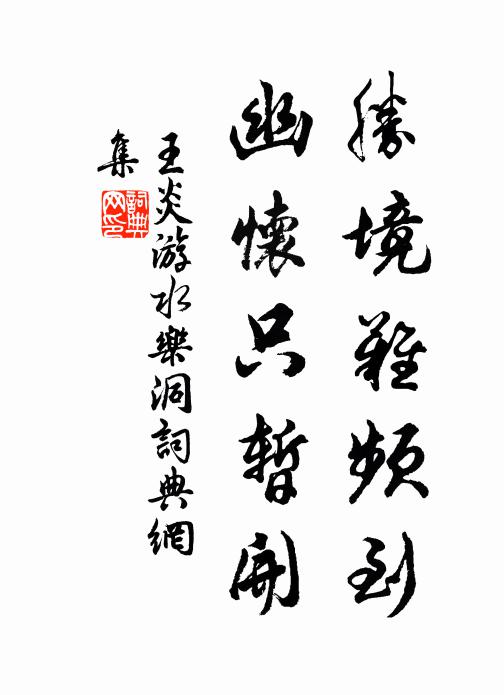 勝境難頻到
幽懷只暫開
王炎游水樂洞詞典網
集
詞典
网印